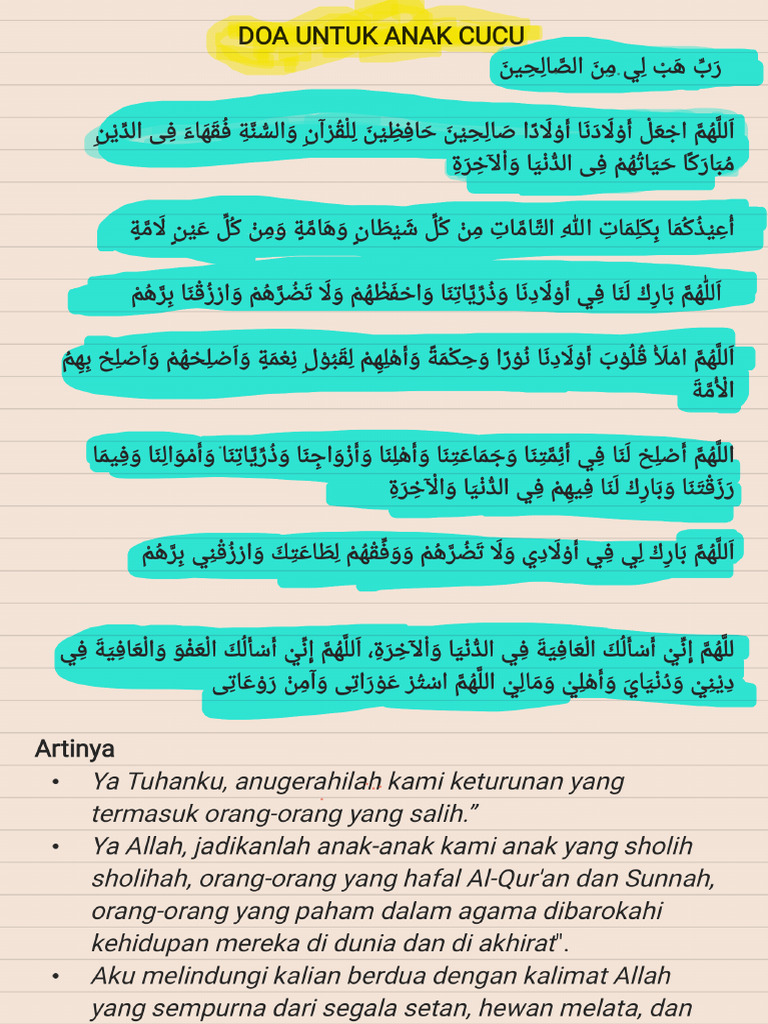 DOA UNTUK ANAK CUCU
رَبِّ هَبْ لِي مِنَ الصَّالِحِينَ
اَللَّهُمَّ اجْعَلْ أَوْلَادَنَا أَوْلَادًا صَالِحِينَ حَافِظِيْنَ لِلْقُرْآنِ وَالسُّنَّةِ فُقَهَاءَ فِى الدِّيْنِ
مُبَارَكًا حَيَاتُهُمْ فِى الدُّنْيَا وَاْلآخِرَةِ
أُعِيْذُكُمَا بِكَلِمَاتِ اللهِ التَّامَّاتِ مِنْ كُلِّ شَيْطَانٍ وَهَامَّةٍ وَمِنْ كُلِّ عَيْنٍ لَامَّةٍ
اَللّٰهُمَّ بَارِكْ لَنَا فِي أَوْلَادِنَا وَذُرِّيَّاتِنَا وَاحْفَظْهُمْ وَلَا تَضُرَّهُمْ وَارْزُقْنَا بِرَّهُمْ
اَللَّهُمَّ امْلَأْ قُلُوْبَ أَوْلَادِنَا نُوْرًا وَحِكْمَةً وَأَهْلِهِمْ لِقَبُوْلِ نِعْمَةٍ وَاَصْلِحْهُمْ وَاَصْلِحْ بِهِمُ
الْأُمَّةَ
اللَّهُمَّ أَصْلِحْ لَنَا فِي أَئِمَّتِنَا وَجَمَاعَتِنَا وَأَهْلِنَا وَأَزْوَاجِنَا وَذُرِّيَّاتِنَا وَأَمْوَالِنَا وَفِيمَا
رَزَقْتَنَا وَبَارِكْ لَنَا فِيهِمْ فِي الدُّنْيَا وَالْآخِرَةِ
اَللَّهُمَّ بَارِكْ لِي فِي أَوْلَادِي وَلَا تَضُرَّهُمْ وَوَفِّقْهُمْ لِطَاعَتِكَ وَارْزُقْنِي بِرَّهُمْ
للَّهُمَّ إِنِّيْ أَسْأَلُكَ الْعَافِيَةَ فِي الدُّنْيَا وَاْلآخِرَةِ، اَللَّهُمَّ إِنِّيْ أَسْأَلُكَ الْعَفْوَ وَالْعَافِيَةَ فِي
دِيْنِيْ وَدُنْيَايَ وَأَهْلِيْ وَمَالِيْ اللَّهُمَّ اسْتُرْ عَوْرَاتِى وَآمِنْ رَوْعَاتِى
Artinya
• Ya Tuhanku, anugerahilah kami keturunan yang
termasuk orang-orang yang salih.”
• Ya Allah, jadikanlah anak-anak kami anak yang sholih
sholihah, orang-orang yang hafal Al-Qur'an dan Sunnah,
orang-orang yang paham dalam agama dibarokahi
kehidupan mereka di dunia dan di akhirat".
• Aku melindungi kalian berdua dengan kalimat Allah
yang sempurna dari segala setan, hewan melata, dan